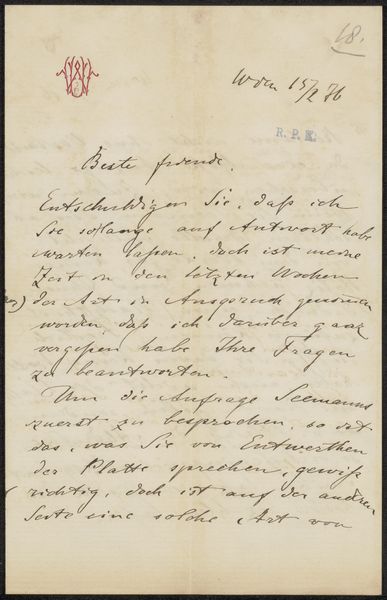 18.
Wien 15/2 76
R. P. K.
Beste freunde.
Entschuldigen Sie, daß ich
Sie solange auf Antwort habe
warten laßen, doch ist meine
Zeit in den letzten Wochen
der Art in Anspruch genommen
worden, daß ich darüber ganz
vergeßen habe Ihre Fragen
zu beantworten.
Um die Anfrage Seemanns
zuerst zu besprechen, so ist
das, was Sie von Entwerthen
der Platte sprechen, gewiß
richtig, doch ist auf der anderen
Seite eine solche Art von